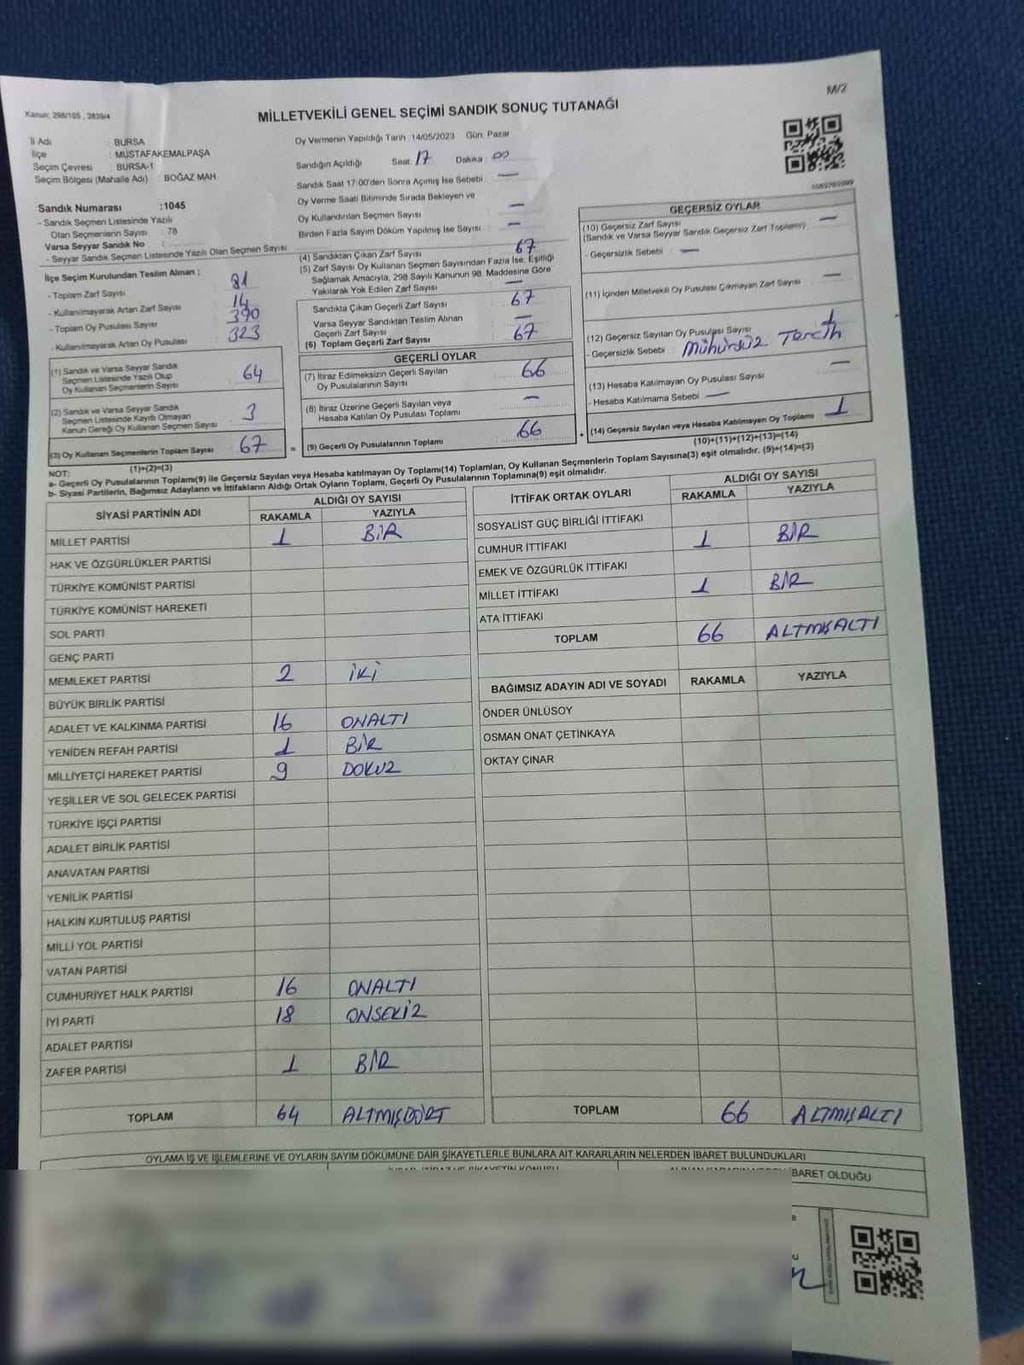 M/2
Kanun: 298/105 , 2839/4
MİLLETVEKİLİ GENEL SEÇİMİ SANDIK SONUÇ TUTANAĞI
İl Adı : BURSA
İlçe : MUSTAFAKEMALPAŞA
Seçim Çevresi : BURSA-1
Seçim Bölgesi (Mahalle Adı) : BOĞAZ MAH.
Sandık Numarası :1045
- Sandık Seçmen Listesinde Yazılı
Olan Seçmenlerin Sayısı : 78
Varsa Seyyar Sandık No :
- Seyyar Sandık Seçmen Listesinde Yazılı Olan Seçmen Sayısı :
Oy Vermenin Yapıldığı Tarih 14/05/2023 Gün: Pazar
Sandığın Açıldığı Saat 17 Dakika 00
Sandık Saat 17:00'den Sonra Açılmış İse Sebebi : —
Oy Verme Saati Bitiminde Sırada Bekleyen ve
Oy Kullandırılan Seçmen Sayısı —
Birden Fazla Sayım Döküm Yapılmış İse Sayısı : —
İlçe Seçim Kurulundan Teslim Alınan ;
- Toplam Zarf Sayısı 81
- Kullanılmayarak Artan Zarf Sayısı 14
- Toplam Oy Pusulası Sayısı 390
- Kullanılmayarak Artan Oy Pusulası 323
(1) Sandık ve Varsa Seyyar Sandık
Seçmen Listesinde Yazılı Olup
Oy Kullanan Seçmenlerin Sayısı 64
(2) Sandık ve Varsa Seyyar Sandık
Seçmen Listesinde Kayıtlı Olmayan
Kanun Gereği Oy Kullanan Seçmen Sayısı 3
(3) Oy Kullanan Seçmenlerin Toplam Sayısı 67
(1)+(2)=(3)
(4) Sandıktan Çıkan Zarf Sayısı 67
(5) Zarf Sayısı Oy Kullanan Seçmen Sayısından Fazla İse, Eşitliği
Sağlamak Amacıyla, 298 Sayılı Kanunun 98. Maddesine Göre
Yakılarak Yok Edilen Zarf Sayısı —
Sandıkta Çıkan Geçerli Zarf Sayısı 67
Varsa Seyyar Sandıktan Teslim Alınan
Geçerli Zarf Sayısı —
(6) Toplam Geçerli Zarf Sayısı 67
GEÇERLİ OYLAR
(7) İtiraz Edilmeksizin Geçerli Sayılan
Oy Pusulalarının Sayısı 66
(8) İtiraz Üzerine Geçerli Sayılan veya
Hesaba Katılan Oy Pusulası Toplamı —
= (9) Geçerli Oy Pusulalarının Toplamı 66 +
GEÇERSİZ OYLAR
(10) Geçersiz Zarf Sayısı —
(Sandık ve Varsa Seyyar Sandık Geçersiz Zarf Toplamı)
- Geçersizlik Sebebi —
(11) İçinden Milletvekili Oy Pusulası Çıkmayan Zarf Sayısı —
(12) Geçersiz Sayılan Oy Pusulası Sayısı 1
- Geçersizlik Sebebi Mühürsüz Tercih
(13) Hesaba Katılmayan Oy Pusulası Sayısı —
- Hesaba Katılmama Sebebi —
(14) Geçersiz Sayılan veya Hesaba Katılmayan Oy Toplamı 1
(10)+(11)+(12)+(13)=(14)
NOT:
a- Geçerli Oy Pusulalarının Toplamı(9) ile Geçersiz Sayılan veya Hesaba katılmayan Oy Toplamı(14) Toplamları, Oy Kullanan Seçmenlerin Toplam Sayısına(3) eşit olmalıdır. (9)+(14)=(3)
b- Siyasi Partilerin, Bağımsız Adayların ve İttifakların Aldığı Ortak Oyların Toplamı, Geçerli Oy Pusulalarının Toplamına(9) eşit olmalıdır.
SİYASİ PARTİNİN ADI ALDIĞI OY SAYISI
RAKAMLA YAZIYLA
MİLLET PARTİSİ 1 BİR
HAK VE ÖZGÜRLÜKLER PARTİSİ
TÜRKİYE KOMÜNİST PARTİSİ
TÜRKİYE KOMÜNİST HAREKETİ
SOL PARTİ
GENÇ PARTİ
MEMLEKET PARTİSİ 2 İKİ
BÜYÜK BİRLİK PARTİSİ
ADALET VE KALKINMA PARTİSİ 16 ONALTI
YENİDEN REFAH PARTİSİ 1 BİR
MİLLİYETÇİ HAREKET PARTİSİ 9 DOKUZ
YEŞİLLER VE SOL GELECEK PARTİSİ
TÜRKİYE İŞÇİ PARTİSİ
ADALET BİRLİK PARTİSİ
ANAVATAN PARTİSİ
YENİLİK PARTİSİ
HALKIN KURTULUŞ PARTİSİ
MİLLİ YOL PARTİSİ
VATAN PARTİSİ
CUMHURİYET HALK PARTİSİ 16 ONALTI
İYİ PARTİ 18 ONSEKİZ
ADALET PARTİSİ
ZAFER PARTİSİ 1 BİR
TOPLAM 64 ALTMIŞDÖRT
İTTİFAK ORTAK OYLARI ALDIĞI OY SAYISI
RAKAMLA YAZIYLA
SOSYALİST GÜÇ BİRLİĞİ İTTİFAKI
CUMHUR İTTİFAKI 1 BİR
EMEK VE ÖZGÜRLÜK İTTİFAKI
MİLLET İTTİFAKI 1 BİR
ATA İTTİFAKI
TOPLAM 66 ALTMIŞALTI
BAĞIMSIZ ADAYIN ADI VE SOYADI RAKAMLA YAZIYLA
ÖNDER ÜNLÜSOY
OSMAN ONAT ÇETİNKAYA
OKTAY ÇINAR
TOPLAM 66 ALTMIŞALTI
OYLAMA İŞ VE İŞLEMLERİNE VE OYLARIN SAYIM DÖKÜMÜNE DAİR ŞİKAYETLERLE BUNLARA AİT KARARLARIN NELERDEN İBARET BULUNDUKLARI
İBARET OLDUĞU